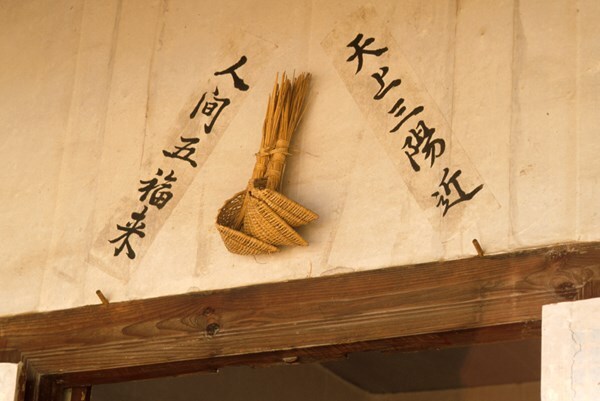 天上三陽近
人間五福来